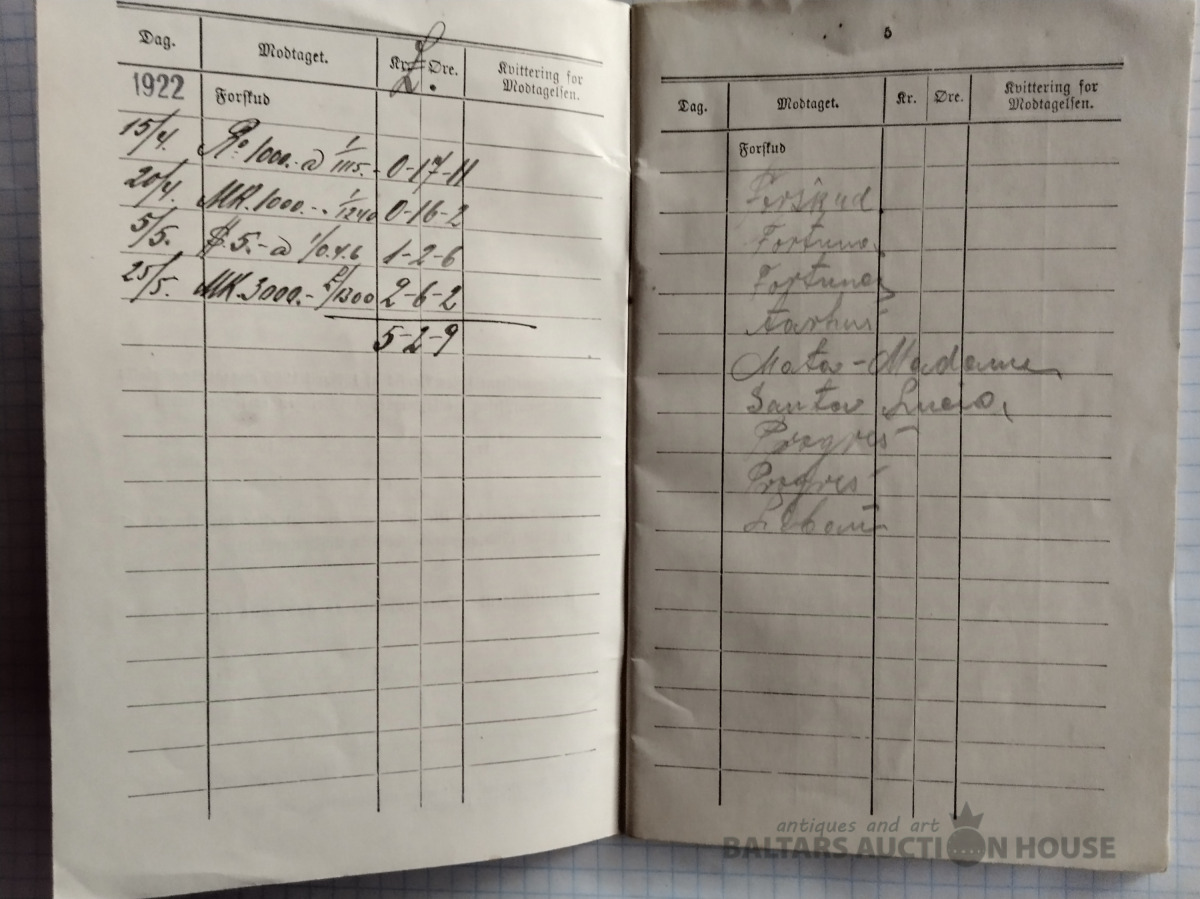 Dag. Modtaget. Kr. Øre. Kvittering for Modtagelsen.
£.
1922 Forskud
15/4. 1000.- a 1/1115.- 0-17-11
20/4. MK. 1000.- 1/1240 0-16-2
5/5. $ 5.- a 1/0.4.6 1-2-6
25/5. MK. 3000.- £/1300 2-6-2
5-2-9
5
Dag. Modtaget. Kr. Øre. Kvittering for Modtagelsen.
Forskud
Forskud
Fortuna
Fortuna
Aarhus
Mata-Madame
Santa Lucia,
Progres
Progres
antiques and art
BALTARS AUCTION HOUSE